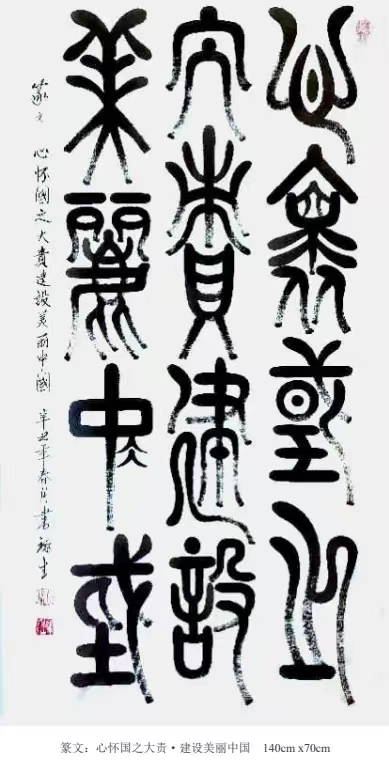 心怀國之
大責建設
美麗中國
篆文 心怀國之大責建设美丽中國 辛丑年春月書
篆文：心怀国之大责·建设美丽中国 140cm x70cm